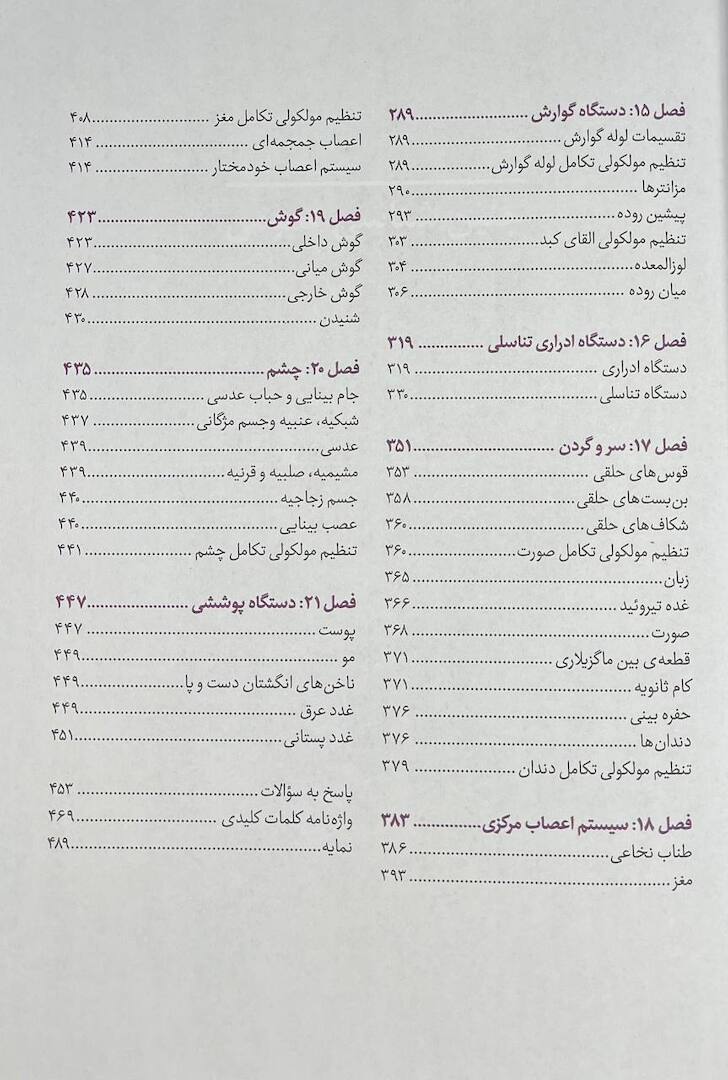 فصل ۱۵: دستگاه گوارش............................۲۸۹
تقسیمات لوله گوارش....................................۲۸۹
تنظیم مولکولی تکامل لوله گوارش...................۲۸۹
مزانترها.....................................................۲۹۰
پیشین روده................................................۲۹۳
تنظیم مولکولی القای کبد...............................۳۰۳
لوزالمعده.....................................................۳۰۴
میان روده...................................................۳۰۶
فصل ۱۶: دستگاه ادراری تناسلی................۳۱۹
دستگاه ادراری............................................۳۱۹
دستگاه تناسلی............................................۳۳۰
فصل ۱۷: سر و گردن..................................۳۵۱
قوس‌های حلقی..........................................۳۵۳
بن‌بست‌های حلقی......................................۳۵۸
شکاف‌های حلقی........................................۳۶۰
تنظیم مولکولی تکامل صورت........................۳۶۰
زبان..........................................................۳۶۵
غده تیروئید................................................۳۶۶
صورت........................................................۳۶۸
قطعه‌ی بین ماگزیلاری.................................۳۷۱
کام ثانویه...................................................۳۷۱
حفره بینی..................................................۳۷۶
دندان‌ها.....................................................۳۷۶
تنظیم مولکولی تکامل دندان........................۳۷۹
فصل ۱۸: سیستم اعصاب مرکزی................۳۸۳
طناب نخاعی...............................................۳۸۶
مغز............................................................۳۹۳
تنظیم مولکولی تکامل مغز............................۴۰۸
اعصاب جمجمه‌ای.......................................۴۱۴
سیستم اعصاب خودمختار...........................۴۱۴
فصل ۱۹: گوش.........................................۴۲۳
گوش داخلی...............................................۴۲۳
گوش میانی................................................۴۲۷
گوش خارجی..............................................۴۲۸
شنیدن......................................................۴۳۰
فصل ۲۰: چشم.........................................۴۳۵
جام بینایی و حباب عدسی...........................۴۳۵
شبکیه، عنبیه وجسم مژگانی........................۴۳۷
عدسی.......................................................۴۳۹
مشیمیه، صلبیه و قرنیه...............................۴۳۹
جسم زجاجیه..............................................۴۴۰
عصب بینایی...............................................۴۴۰
تنظیم مولکولی تکامل چشم.........................۴۴۱
فصل ۲۱: دستگاه پوششی........................۴۴۷
پوست........................................................۴۴۷
مو.............................................................۴۴۹
ناخن‌های انگشتان دست و پا........................۴۴۹
غدد عرق...................................................۴۴۹
غدد پستانی................................................۴۵۱
پاسخ به سؤالات..........................................۴۵۳
واژه‌نامه کلمات کلیدی..................................۴۶۹
نمایه..........................................................۴۸۹